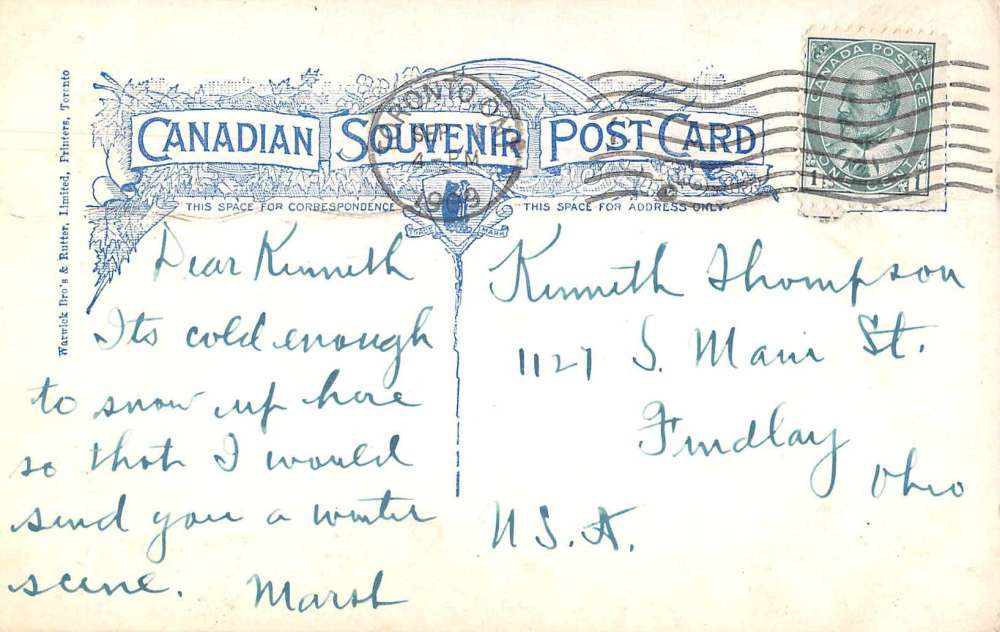 CANADIAN SOUVENIR POST CARD
THIS SPACE FOR CORRESPONDENCE
THIS SPACE FOR ADDRESS ONLY
TRADE MARK
TORONTO ONT
SEP
4 - PM
CANADA POSTAGE
1 ONE CENT 1
Warwick Bro's & Rutter, Limited, Printers, Toronto
Dear Kenneth
Its cold enough
to snow up here
so that I would
send you a winter
scene. Marsh
Kenneth Thompson
1127 S. Main St.
Findlay
Ohio
U.S.A.